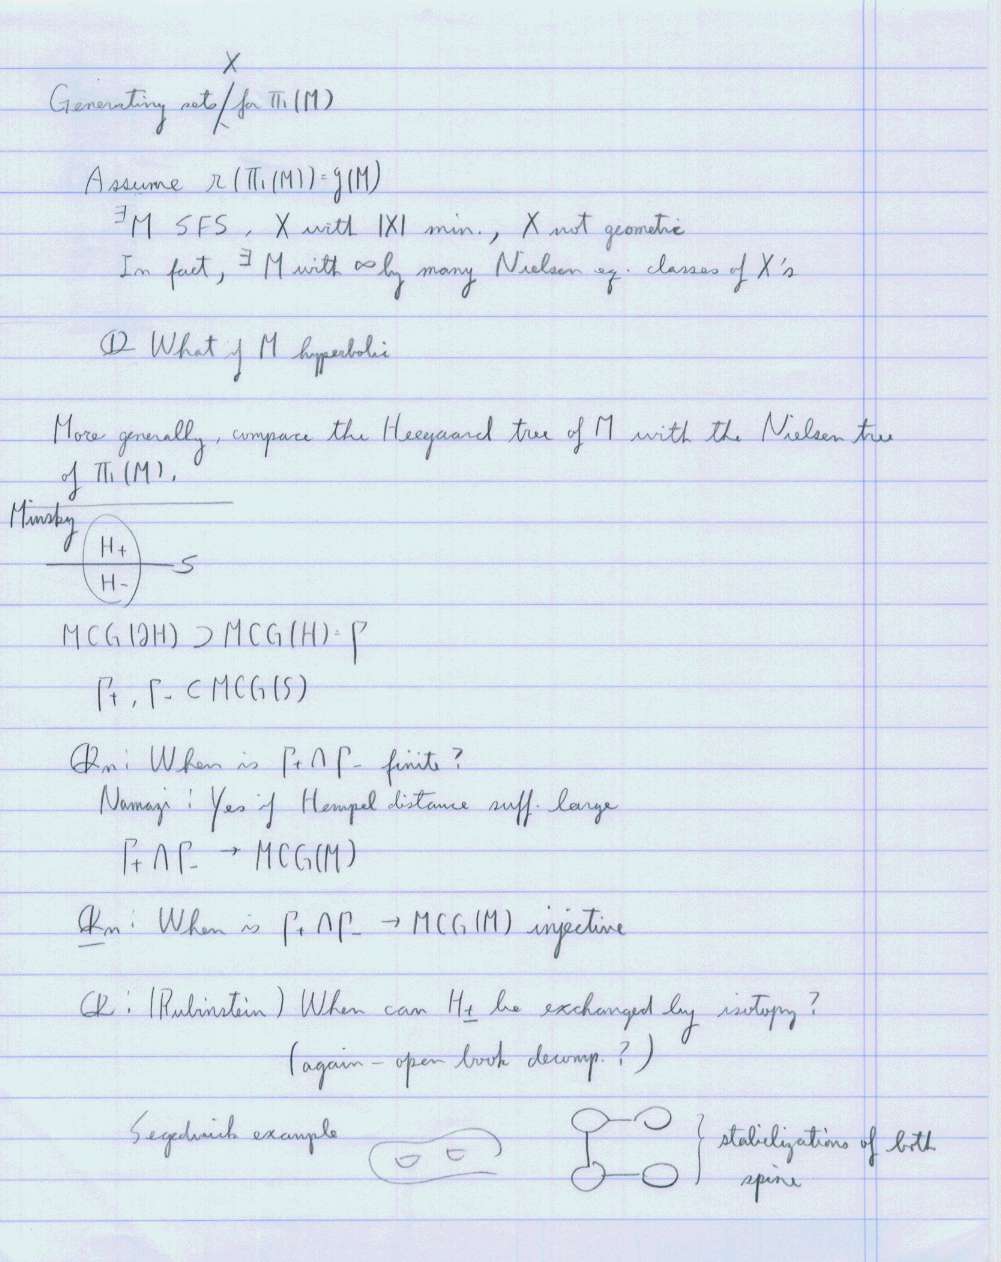 X
Generating sets / for π₁(M)
Assume r(π₁(M)) = g(M)
∃ M SFS, X with |X| min., X not geometric
In fact, ∃ M with ∞ly many Nielsen eq. classes of X's
Q What if M hyperbolic
More generally, compare the Heegaard tree of M with the Nielsen tree
of π₁(M).
Minsky
H+
S
H-
MCG(∂H) ⊃ MCG(H) = Γ
Γ+, Γ- ⊂ MCG(S)
Qn: When is Γ+ ∩ Γ- finite?
Namazi: Yes if Hempel distance suff. large
Γ+ ∩ Γ- → MCG(M)
Qn: When is Γ+ ∩ Γ- → MCG(M) injective
Q: (Rubinstein) When can H± be exchanged by isotopy?
(again - open book decomp.?)
Segedwick example
stabilizations of both
spine